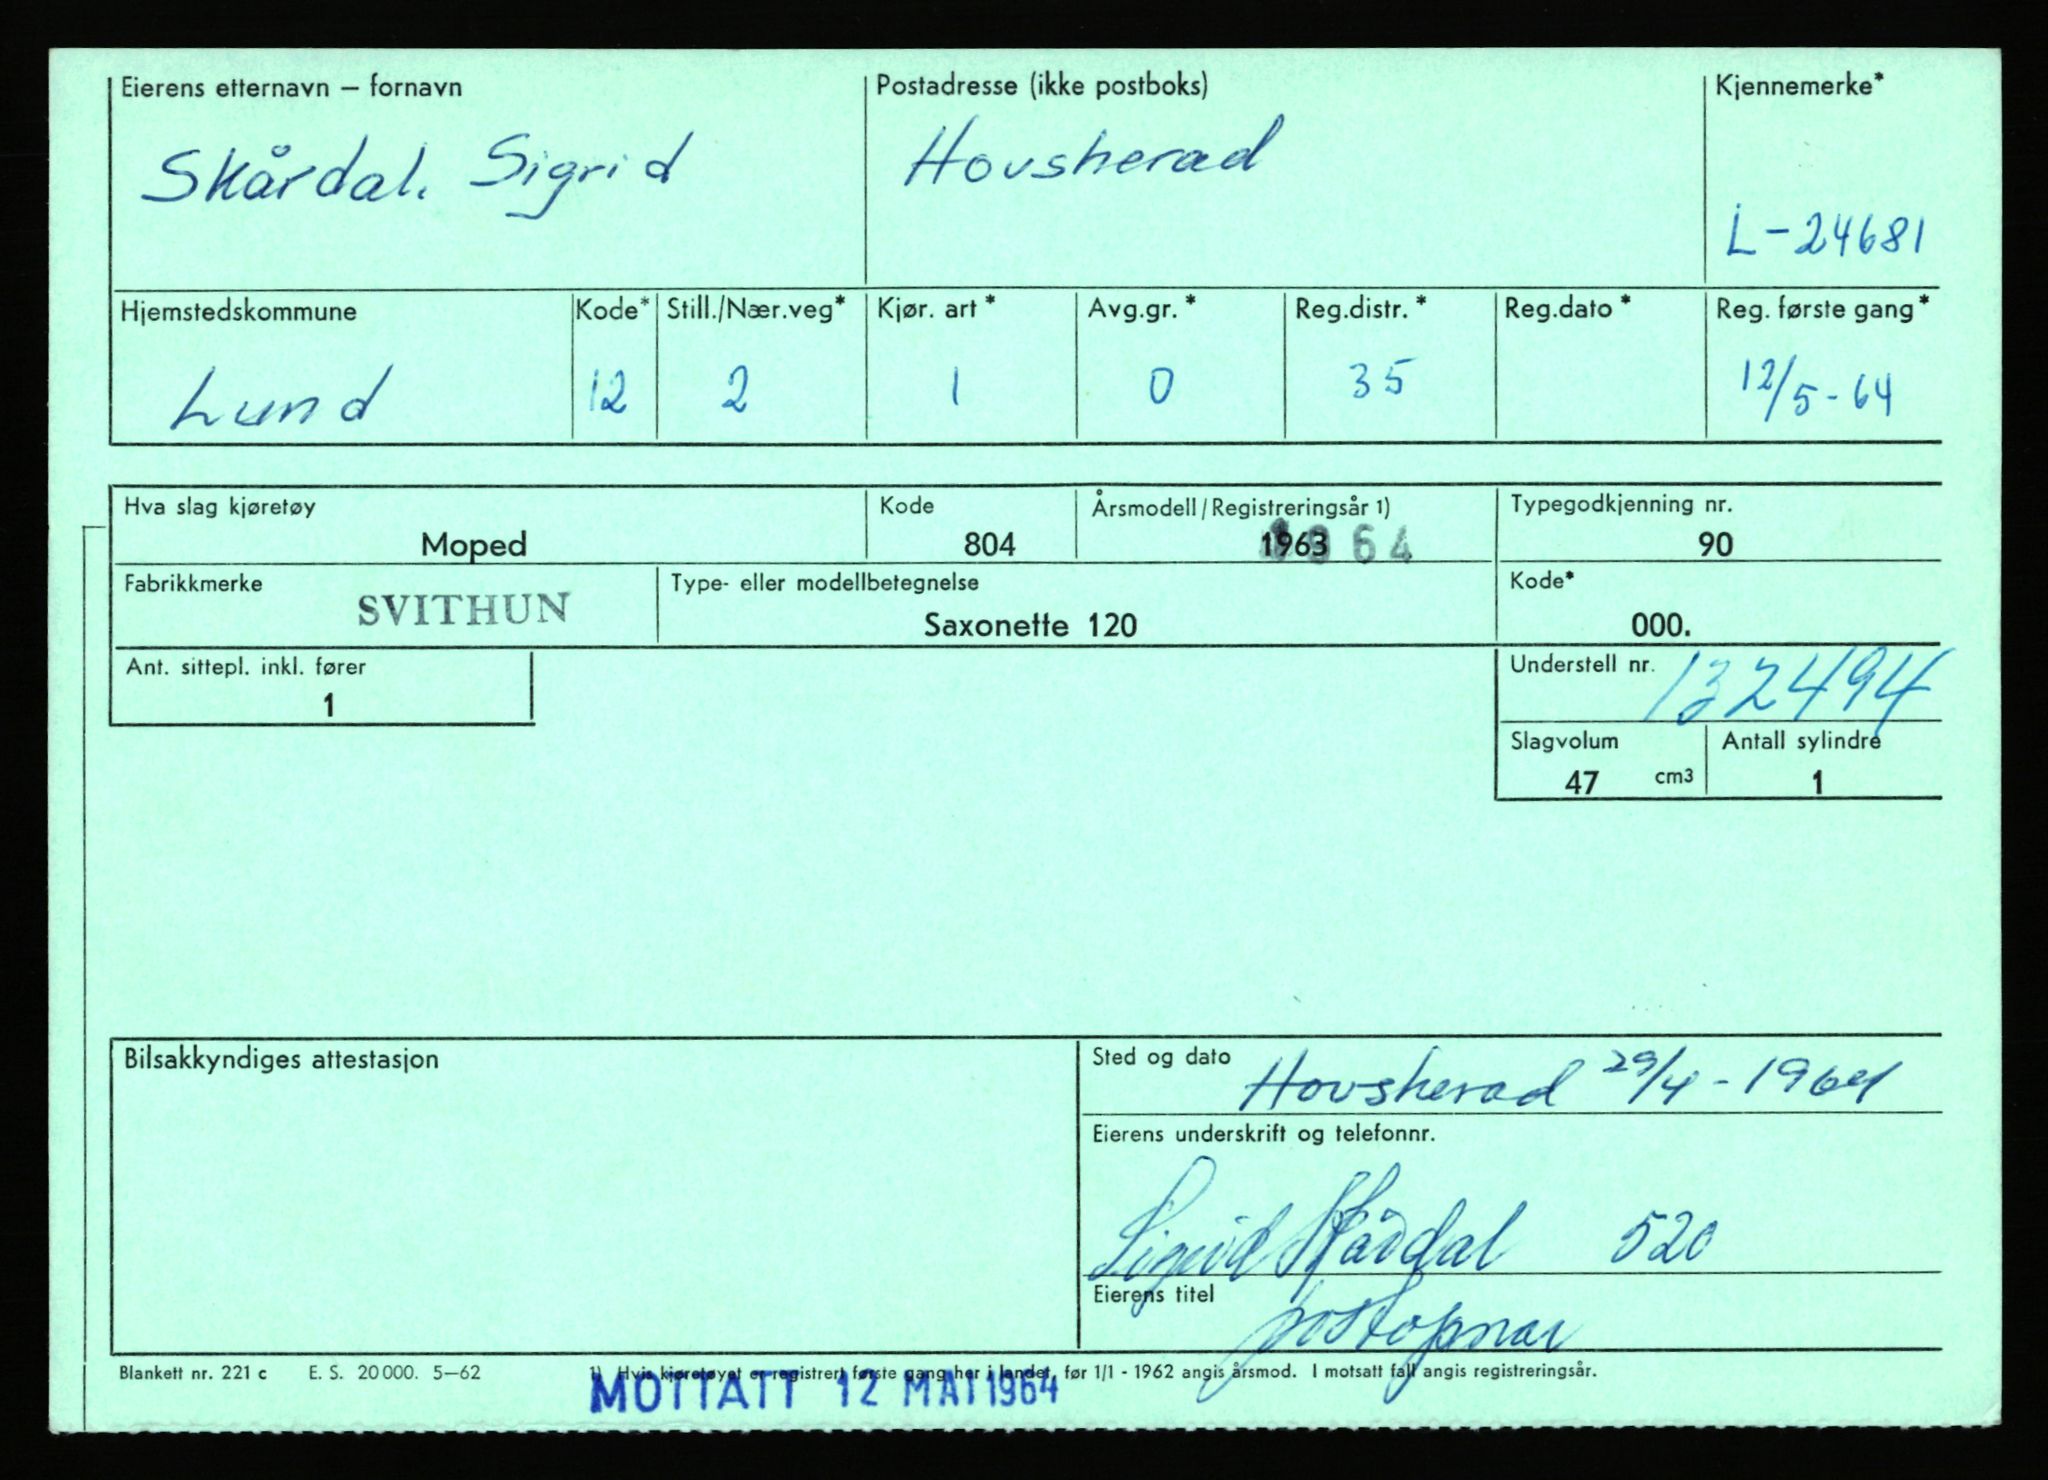 Eierens etternavn – fornavn
Postadresse (ikke postboks)
Kjennemerke*
Skårdal. Sigrid
Hovsherad
L-24681
Hjemstedskommune
Kode*
Still./Nær.veg*
Kjør. art*
Avg.gr.*
Reg.distr.*
Reg.dato*
Reg. første gang*
Lund
12
2
1
0
35
12/5-64
Hva slag kjøretøy
Kode
Årsmodell/Registreringsår 1)
Typegodkjenning nr.
Moped
804
1963
64
90
Fabrikkmerke
SVITHUN
Type- eller modellbetegnelse
Saxonette 120
Kode*
000.
Ant. sittepl. inkl. fører
1
Understell nr. 132494
Slagvolum
47 cm3
Antall sylindre
1
Bilsakkyndiges attestasjon
Sted og dato
Hovsherad 29/4-1964
Eierens underskrift og telefonnr.
Sigrid Skårdal 520
Eierens titel
postopnar
Blankett nr. 221 c E. S. 20 000. 5–62
1) Hvis kjøretøyet er registrert første gang her i landet, før 1/1 - 1962 angis årsmod. I motsatt fall angis registreringsår.
MOTTATT 12 MAI 1964